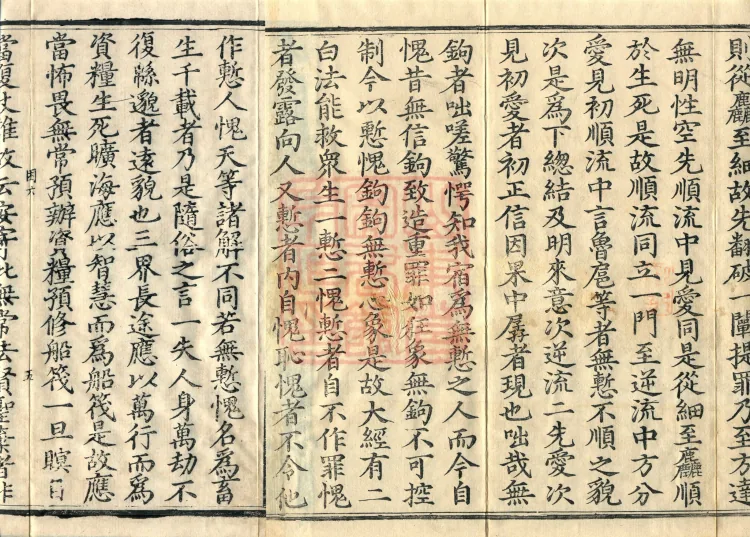 則從麤至細故先翻破一闡提罪乃至友達
無明性空先順流中見愛同是從細至麤順
於生死是故順流同立一門至逆流中方分
愛見初順流中言魯扈等者無慙不順之貌
次是為下總結及明來意次逆流二先愛次
見初愛者初正信因果中孱者現也咄哉無
鉤者咄嗟驚愕知我宿為無慙之人而今自
愧昔無信鉤致造重罪如狂象無鉤不可控
制今以慙愧鉤鉤無慙心象是故大經有二
白法能救眾生一慙二愧慙者自不作罪愧
者發露向人又慙者內自愧恥愧者不令他
作慙人愧天等諸解不同若無慙愧名為畜
生千載者乃是隨俗之言一失人身萬劫不
復緜邈者遠貌也三界長途應以萬行而為
資糧生死曠海應以智慧而為船筏是故應
當怖畏無常預辦資糧預修船筏一旦瞑目
當復